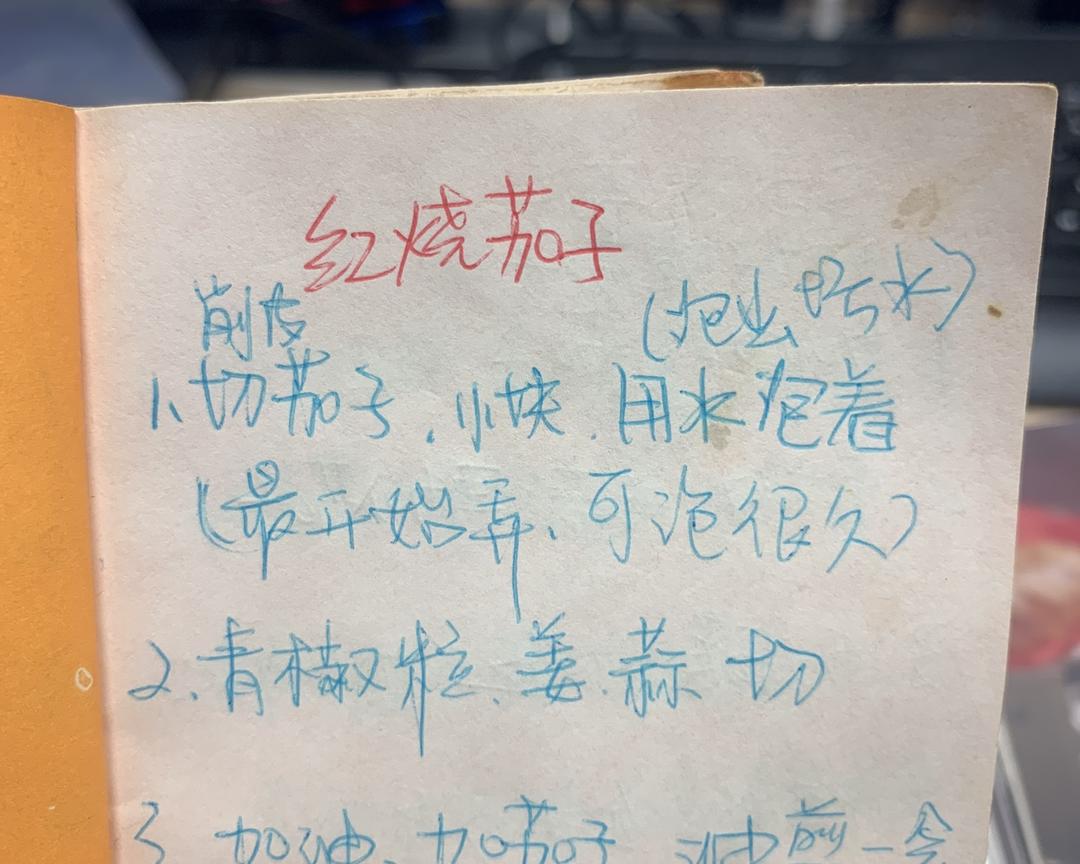 红烧茄子
削皮
(泡出 水)
1、切茄子.小块.用水泡着
(最开始弄、可泡很久)
2.青椒粒、姜.蒜 切
3 加油、加茄子 油煎一会